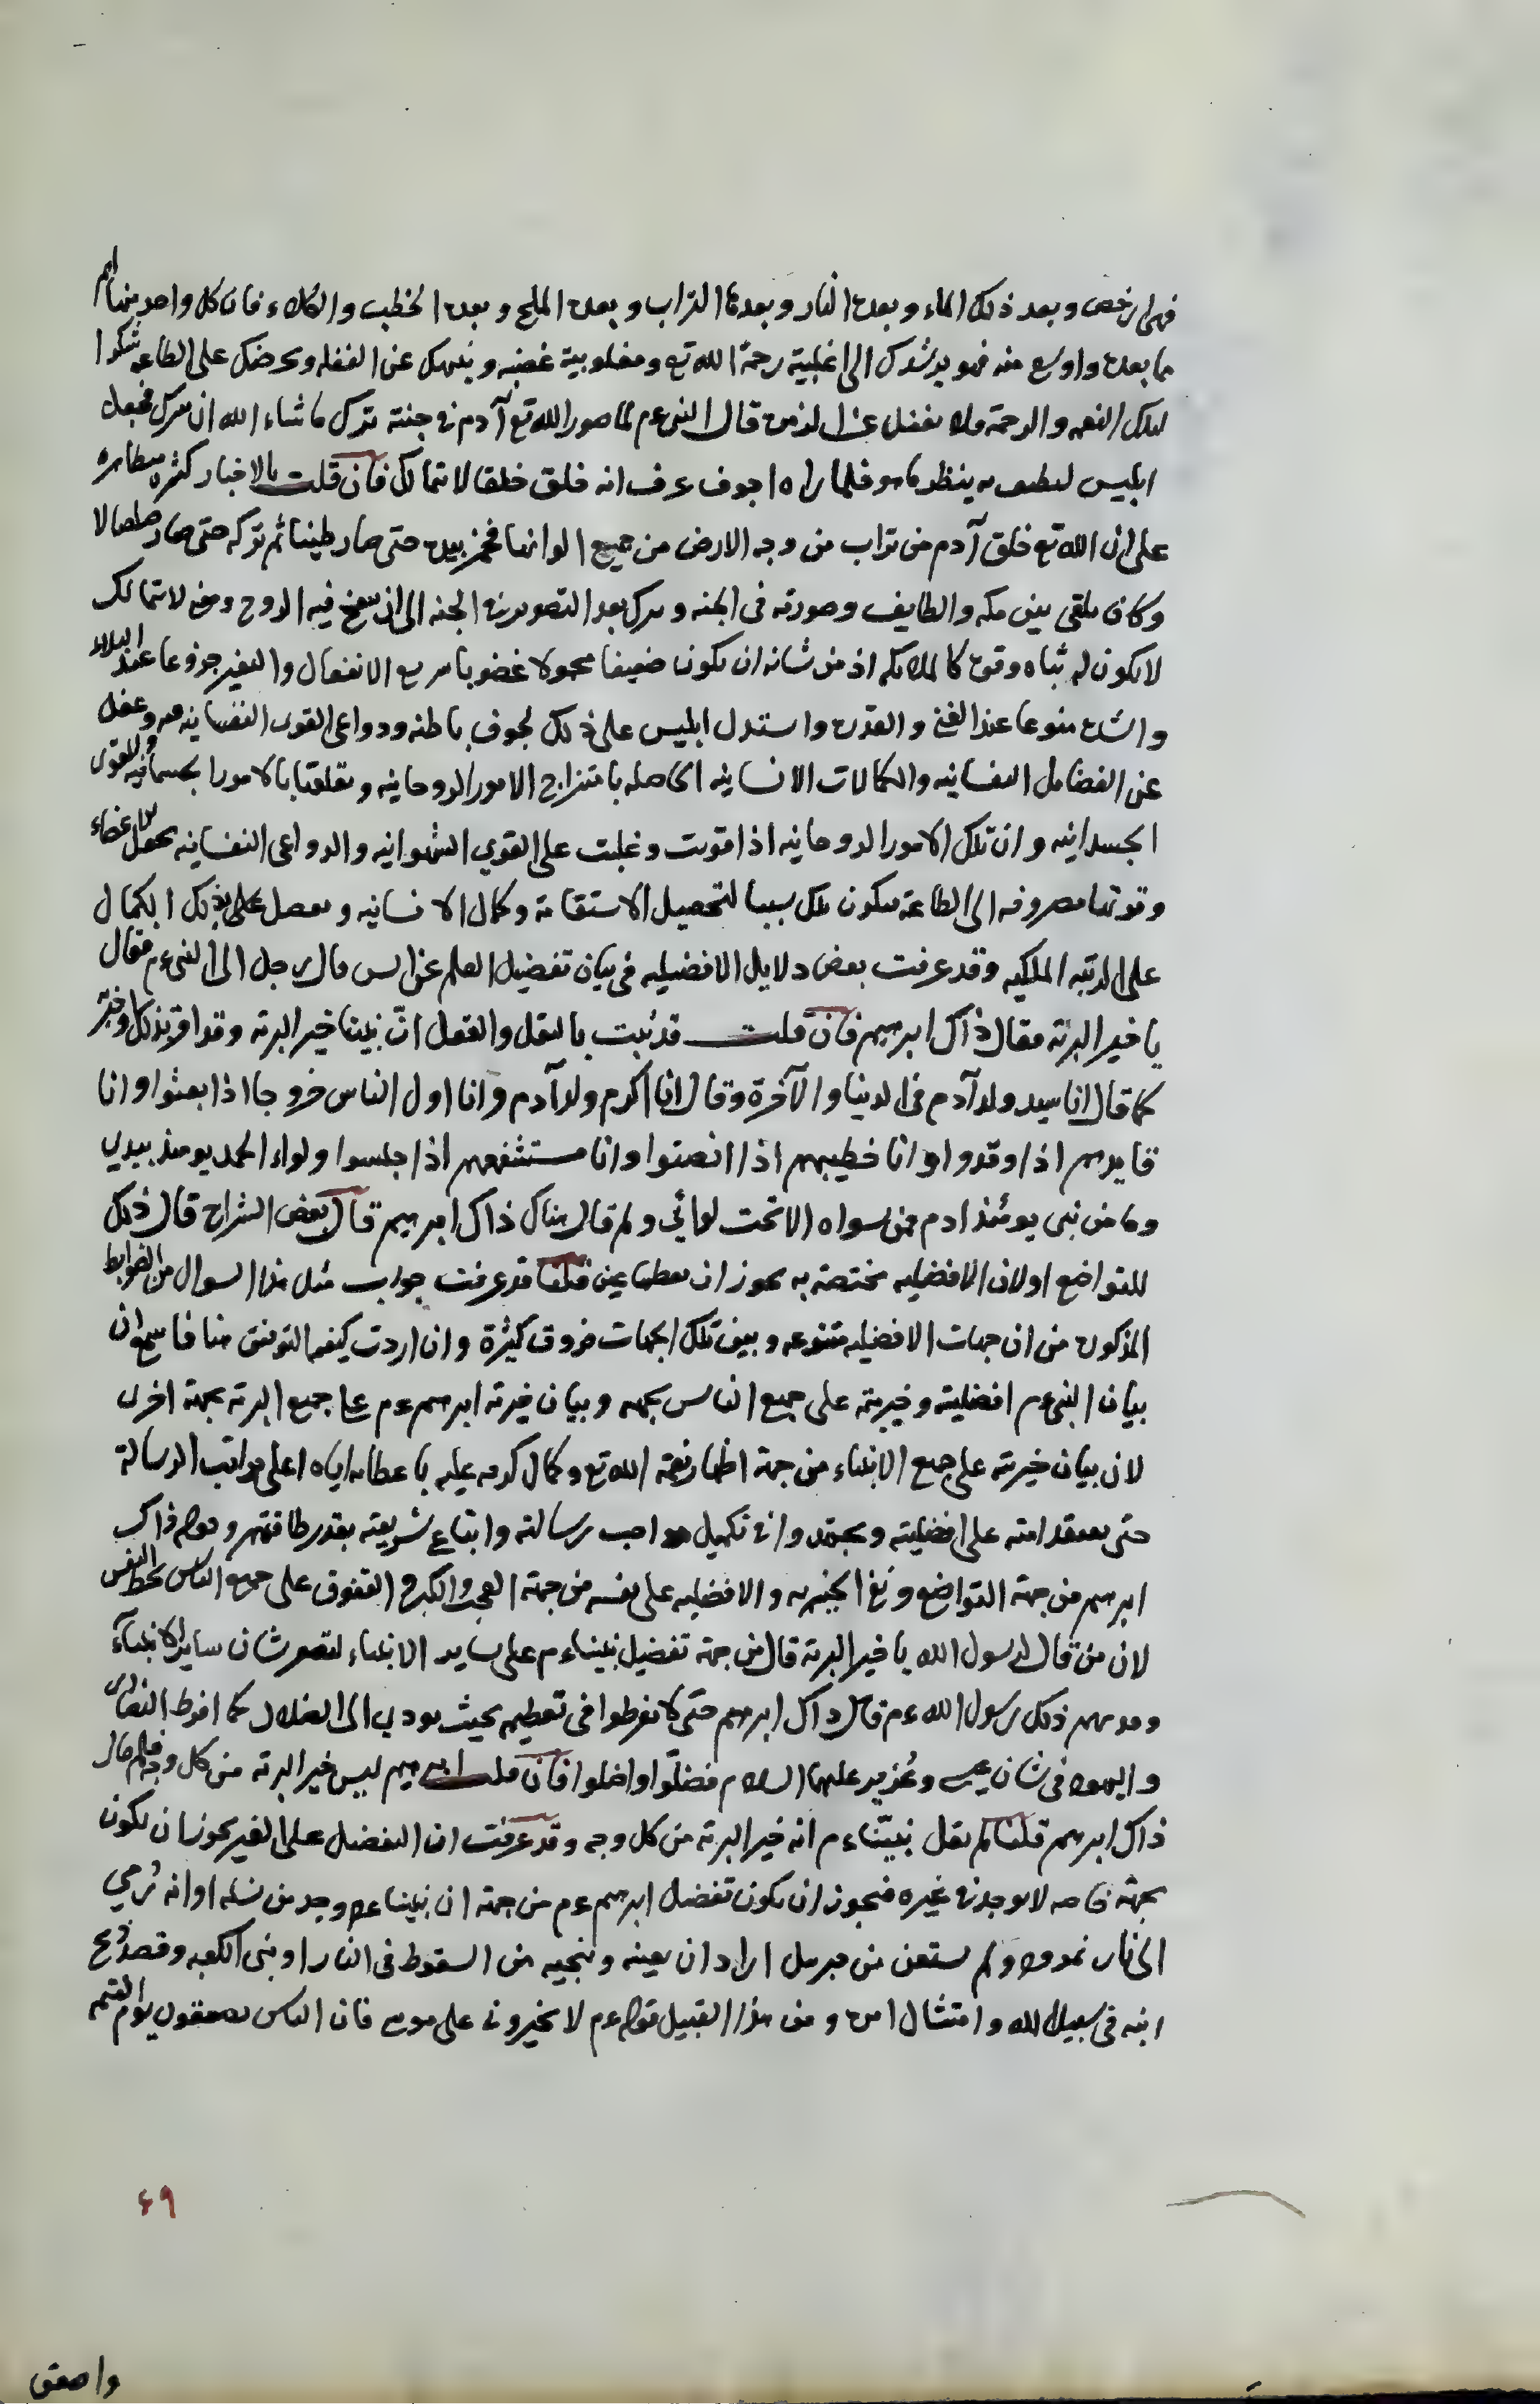 فهى ارخص وبعد ذلك الماء وبعده النار وبعدها التراب وبعده الملح وبعده الحطب والكلاء فان كل واحد منها اهم
مما بعده واوسع منه فهو يرشدك الى اغلبية رحمة الله تع ومغلوبية غضبه وينبهك عن الغفله ويحرضك على الطاعه شكرا
لتلك النعم والرحمة ولا تغفل عن انس قال النبى عم لما صور الله تع آدم فى جنته تركه ما شاء الله ان يتركه فجعل
ابليس يطيف به ينظر ما هو فلما راه اجوف عرف انه خلق خلقا لا يتمالك فان قلت الاخبار كثره متظاهره
على ان الله تع خلق آدم من تراب من وجه الارض من جميع الوانها فخمر بيده حتى صار طينا ثم تركه حتى صار صلصالا
وكان ملقى بين مكه والطايف وصورته فى الجنه وترك بعد التصوير فى الجنه الى ان ينفخ فيه الروح ومعنى لا يتمالك
لا يكون له ثبات وقوة كالملائكه اذ من شانه ان يكون ضعيفا عجولا غضوبا سريع الانفعال والتغير جزوعا عند البلاء
والشدة منوعا عند الغنى والقدرة واستدل ابليس على ذلك بجوف باطنه ودواعى القوى النفسانيه فيه وغفل
عن الفضايل النفسانيه والكمالات الانسانيه الحاصله بامتزاج الامور الروحانيه وتعلقها بالامور الجسمانيه والقوى
الجسدانيه وان تلك الامور الروحانيه اذا قويت وغلبت على القوى الشهوانيه والدواعى النفسانيه يجعل الاعضاء
وقوتها مصروفه الى الطاعة فيكون تلك سببا لتحصيل الاستقامة وكمال الانسانيه ويفضل على بذلك الكمال
على الرتبه الملكيه وقد عرفت بعض دلايل الافضليه فى بيان تفضيل العلم عن انس قال رجل الى النبى عم فقال
يا خير البرية فقال ذاك ابرهيم فان قلت قد ثبت بالنقل والعقل ان نبينا خير البرية وقد اقر بذلك واخبر
كما قال انا سيد ولد آدم فى الدنيا والآخرة وقال انا اكرم ولد آدم وانا اول الناس خروجا اذا بعثوا وانا
قايدهم اذا وفدوا وانا خطيبهم اذا انصتوا وانا مستشفعهم اذا جلسوا ولواء الحمد يومئذ بيدي
وما من نبى يومئذ ادم فمن سواه الا تحت لوائي ولم قال هناك ذاك ابرهيم قال بعض الشراح قال ذلك
للتواضع او لان الافضليه مختصة به يجوز ان يعطيها غيره قلنا قد عرفت جواب مثل هذا السوال من الضوابط
المذكورة من ان جهات الافضليه متنوعه وبين تلك الجهات فروق كثيرة وان اردت كيفية التوفيق هنا فاسمع ان
بيان النبى عم افضليته وخيريته على جميع الناس بجهه وبيان خيرية ابرهيم عم على جميع البرية بجهة اخرى
لان بيان خيريته على جميع الانبياء من جهة اظهار نعمة الله تع وكمال كرمه عليه باعطائه اياه اعلى مراتب الرسالة
حتى يعتقد امته على افضليته ويجتهدوا فى تكميل مواجب رسالته واتباع شريعته بقدر طاقتهم وقوله ذاك
ابرهيم من جهة التواضع ونفى الخيريه والافضليه على نفسه من جهة العجب والكبر والتفوق على جميع الناس لحظ النفس
لان من قال لرسول الله يا خير البرية قال من جهة تفضيل نبينا عم على ساير الانبياء لقصر شان ساير الانبياء
وفهم ذلك رسول الله عم قال ذاك ابرهيم حتى لا يفرطوا فى تعظيمه بحيث يودي الى الضلال كما افرط النصارى
واليهود فى شان عيسى وعُزير عليهما السلام فضلّوا واضلوا فان قلت ابرهيم ليس خير البرية من كل وجه فلم قال
ذاك ابرهيم قلنا لم يقل نبيّنا عم انه خير البرية من كل وجه وقد عرفت ان التفضيل على الغير يجوز ان يكون
بجهة خاصه لا يوجد فى غيره فيجوز ان يكون تفضيل ابرهيم عم من جهة ان نبينا عم وجد من نسله او انه رُمي
الى نار نمرود ولم يستعن من جبريل اراد ان يعينه وينجيه من السقوط فى النار او بنى الكعبه وقصد ذبح
ابنه فى سبيل الله وامتثال امره ومن هذا القبيل قوله عم لا تخيرونى على موسى فان الناس يصعقون يوم القيمه
٦٩
واصعق